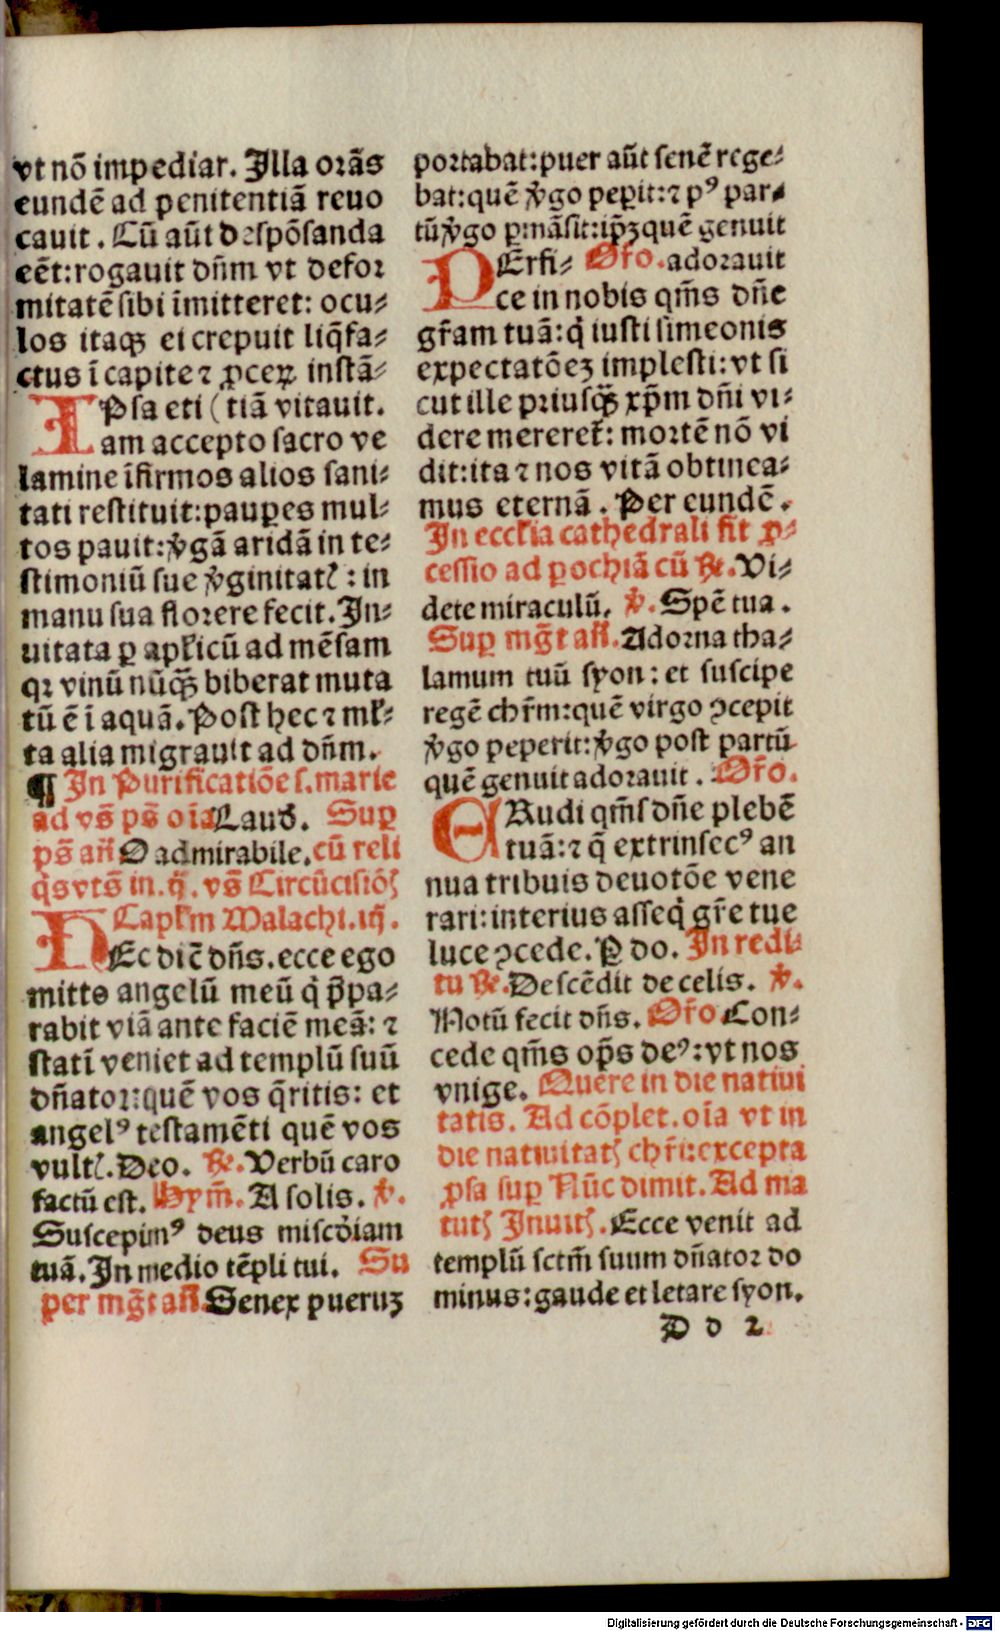 vt nō impediar. Illa orās
eundē ad penitentiā reuo
cauit. Cū aūt despōsanda
eēt: rogauit dn̄m vt defor
mitatē sibi īmitteret: ocu⸗
los itaqꝫ ei crepuit liq̄fa⸗
ctus ī capite ⁊ ꝓceꝝ instā⸗
IPsa eti (tiā vitauit.
am accepto sacro ve
lamine īfirmos alios sani⸗
tati restituit: pauꝑes mul⸗
tos pauit: v̓gā aridā in te⸗
stimoniū sue v̓ginitatꝭ: in
manu sua florere fecit. In⸗
uitata ꝑ apl̓icū ad mēsam
qꝛ vinū nūqꝫ biberat muta
tū ē ī aquā. Post hec ⁊ ml̓⸗
ta alia migrauit ad dn̄m.
¶ In Purificatiōe s. marie
ad vs̄ ps̄ oīa Laud. Sup̱
ps̄ an̄ O admirabile. cū reli
q̇s vts̄ in. ij. vs̄ Circūcisiōꝭ
Capl̓m Malachi. iij.
HEc dic̄ dn̄s. ecce ego
mitto angelū meū q̇ p̄pa⸗
rabit viā ante faciē meā: ⁊
statī veniet ad templū suū
dn̄ator: quē vos q̄ritis: et
angelꝰ testamēti quē vos
vultꝭ. Deo. ℟. Verbū caro
factū est. Hym̄. A solis. ℣.
Suscepimꝰ deus miscd̓iam
tuā. In medio tēpli tui. Su
per mḡt an̄. Senex pueruꝫ
portabat: puer aūt senē rege⸗
bat: quē v̓go peꝑit: ⁊ pꝰ par⸗
tū v̓go ꝑmāsit: ip̄ꝫ quē genuit
PErfi⸗ Or̄o. adorauit
ce in nobis qm̄s dn̄e
gr̄am tuā: q̇ iusti simeonis
expectatōeꝫ implesti: vt si
cut ille priusqꝫ xp̄m dn̄i vi⸗
dere mereret̄: mortē nō vi
dit: ita ⁊ nos vitā obtinea⸗
mus eternā. Per eundē.
In eccl̓ia cathedrali fit ꝓ⸗
cessio ad ꝑochiā cū ℟. Vi⸗
dete miraculū. ℣. Spē tua.
Sup̱ mḡt an̄. Adorna tha⸗
lamum tuū syon: et suscipe
regē chr̄m: quē virgo ꝯcepit
v̓go peperit: v̓go post partū
quē genuit adorauit. Or̄o.
ERudi qm̄s dn̄e plebē
tuā: ⁊ q̄ extrinsecꝰ an
nua tribuis deuotōe vene
rari: interius asseq̇ gr̄e tue
luce ꝯcede. P̱ do. In redi⸗
tu ℟. Descēdit de celis. ℣.
Notū fecit dn̄s. Or̄o Con⸗
cede qm̄s op̄s deꝰ: vt nos
vnige. Quere in die natiui
tatis. Ad cōplet. oīa vt in
die natiuitatꝭ chr̄i: excepta
ꝓsa sup̱ Nūc dimit. Ad ma
tutꝭ Inuitꝭ. Ecce venit ad
templū sctm̄ suum dn̄ator do
minus: gaude et letare syon.
D d 2
Digitalisierung gefördert durch die Deutsche Forschungsgemeinschaft - DFG